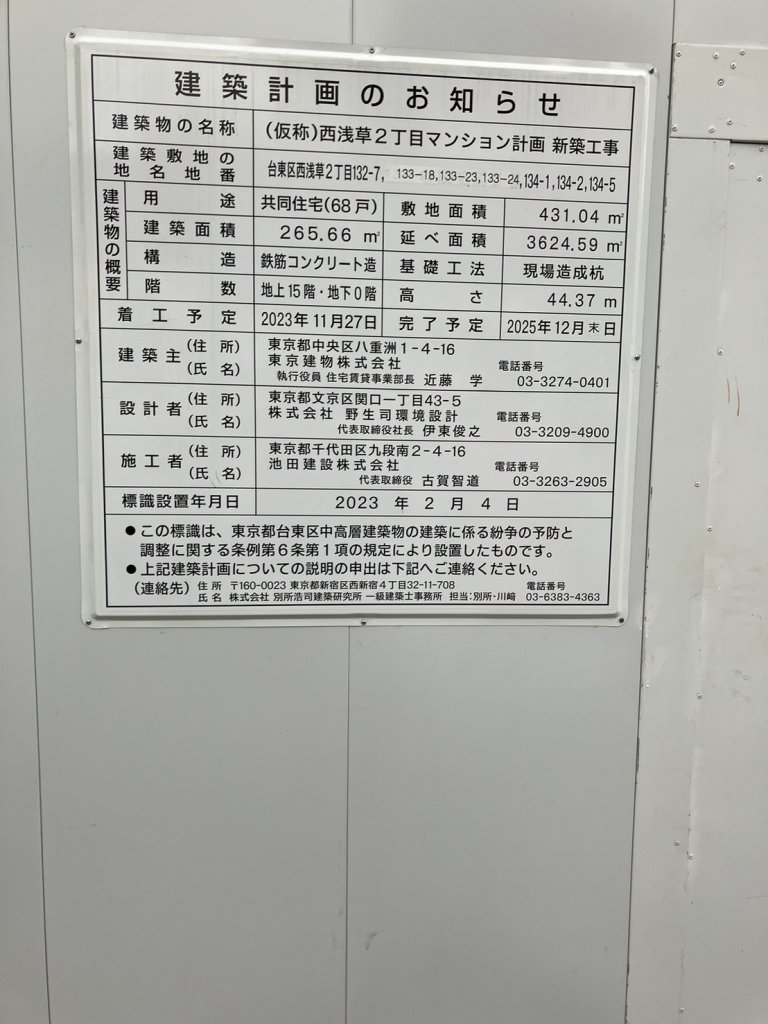 建築計画のお知らせ
建築物の名称 (仮称)西浅草2丁目マンション計画 新築工事
建築敷地の地名地番 台東区西浅草2丁目132-7, 133-18,133-23,133-24,134-1,134-2,134-5
建築物の概要
用途 共同住宅(68戸) 敷地面積 431.04 ㎡
建築面積 265.66 ㎡ 延べ面積 3624.59 ㎡
構造 鉄筋コンクリート造 基礎工法 現場造成杭
階数 地上15階・地下0階 高さ 44.37 m
着工予定 2023年11月27日 完了予定 2025年12月末日
建築主 (住所) (氏名)
東京都中央区八重洲1-4-16
東京建物株式会社 電話番号
執行役員 住宅賃貸事業部長 近藤 学 03-3274-0401
設計者 (住所) (氏名)
東京都文京区関口一丁目43-5
株式会社 野生司環境設計 電話番号
代表取締役社長 伊東俊之 03-3209-4900
施工者 (住所) (氏名)
東京都千代田区九段南2-4-16
池田建設株式会社 電話番号
代表取締役 古賀智道 03-3263-2905
標識設置年月日 2023 年 2 月 4 日
●この標識は、東京都台東区中高層建築物の建築に係る紛争の予防と
調整に関する条例第6条第1項の規定により設置したものです。
●上記建築計画についての説明の申出は下記へご連絡ください。
(連絡先) 住所 〒160-0023 東京都新宿区西新宿4丁目32-11-708 電話番号
氏名 株式会社 別所浩司建築研究所 一級建築士事務所 担当:別所・川﨑 03-6383-4363